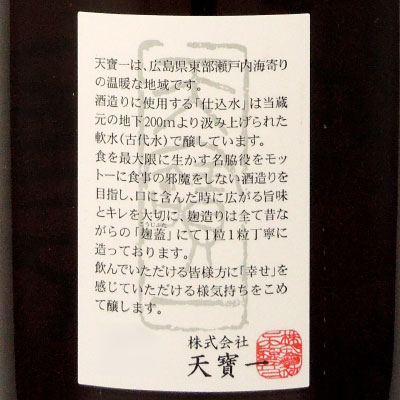 天寶一は、広島県東部瀬戸内海寄り
の温暖な地域です。
酒造りに使用する「仕込水」は当蔵
元の地下200mより汲み上げられた
軟水(古代水)で醸しています。
食を最大限に生かす名脇役をモッ
トーに食事の邪魔をしない酒造りを
目指し、口に含んだ時に広がる旨味
とキレを大切に、麹造りは全て昔な
がらの「麹蓋」にて1粒1粒丁寧に
造っております。
飲んでいただける皆様方に「幸せ」を
感じていただける様気持ちをこめ
て醸します。
株式会社
天寶一